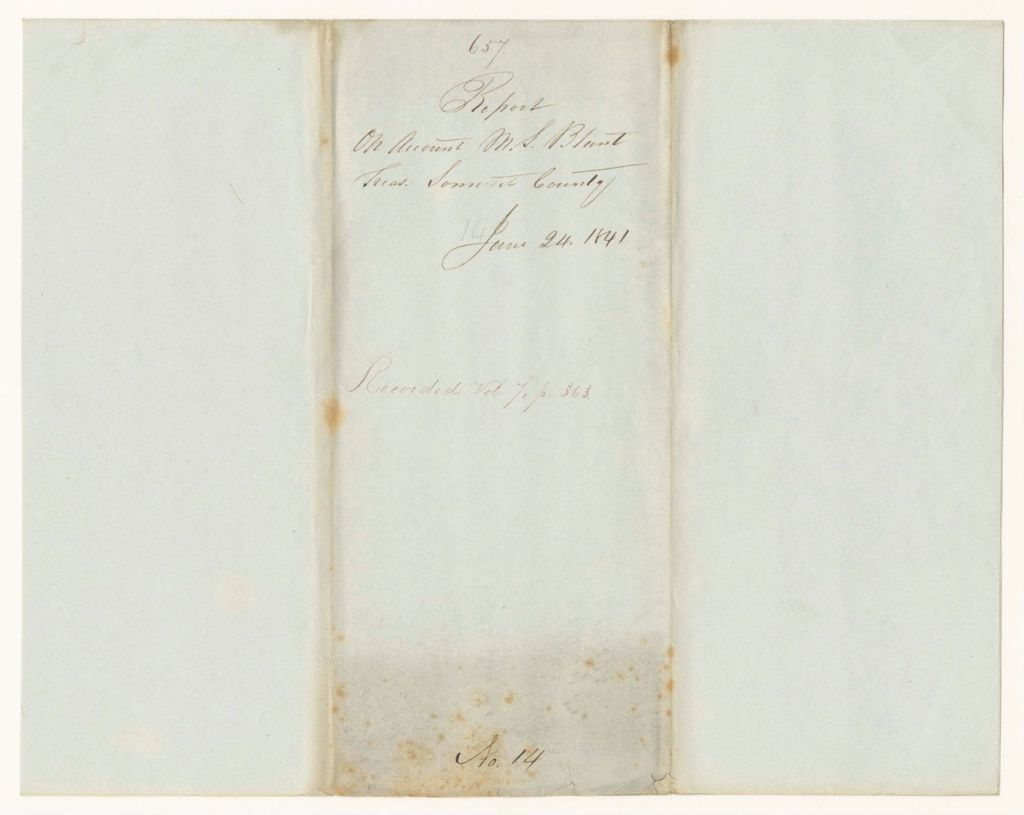 657.
Report
On Account M. S. Blunt
Treas. Somerset County
14
June 24. 1841
Recorded Vol 7, p. 363.
No. 14